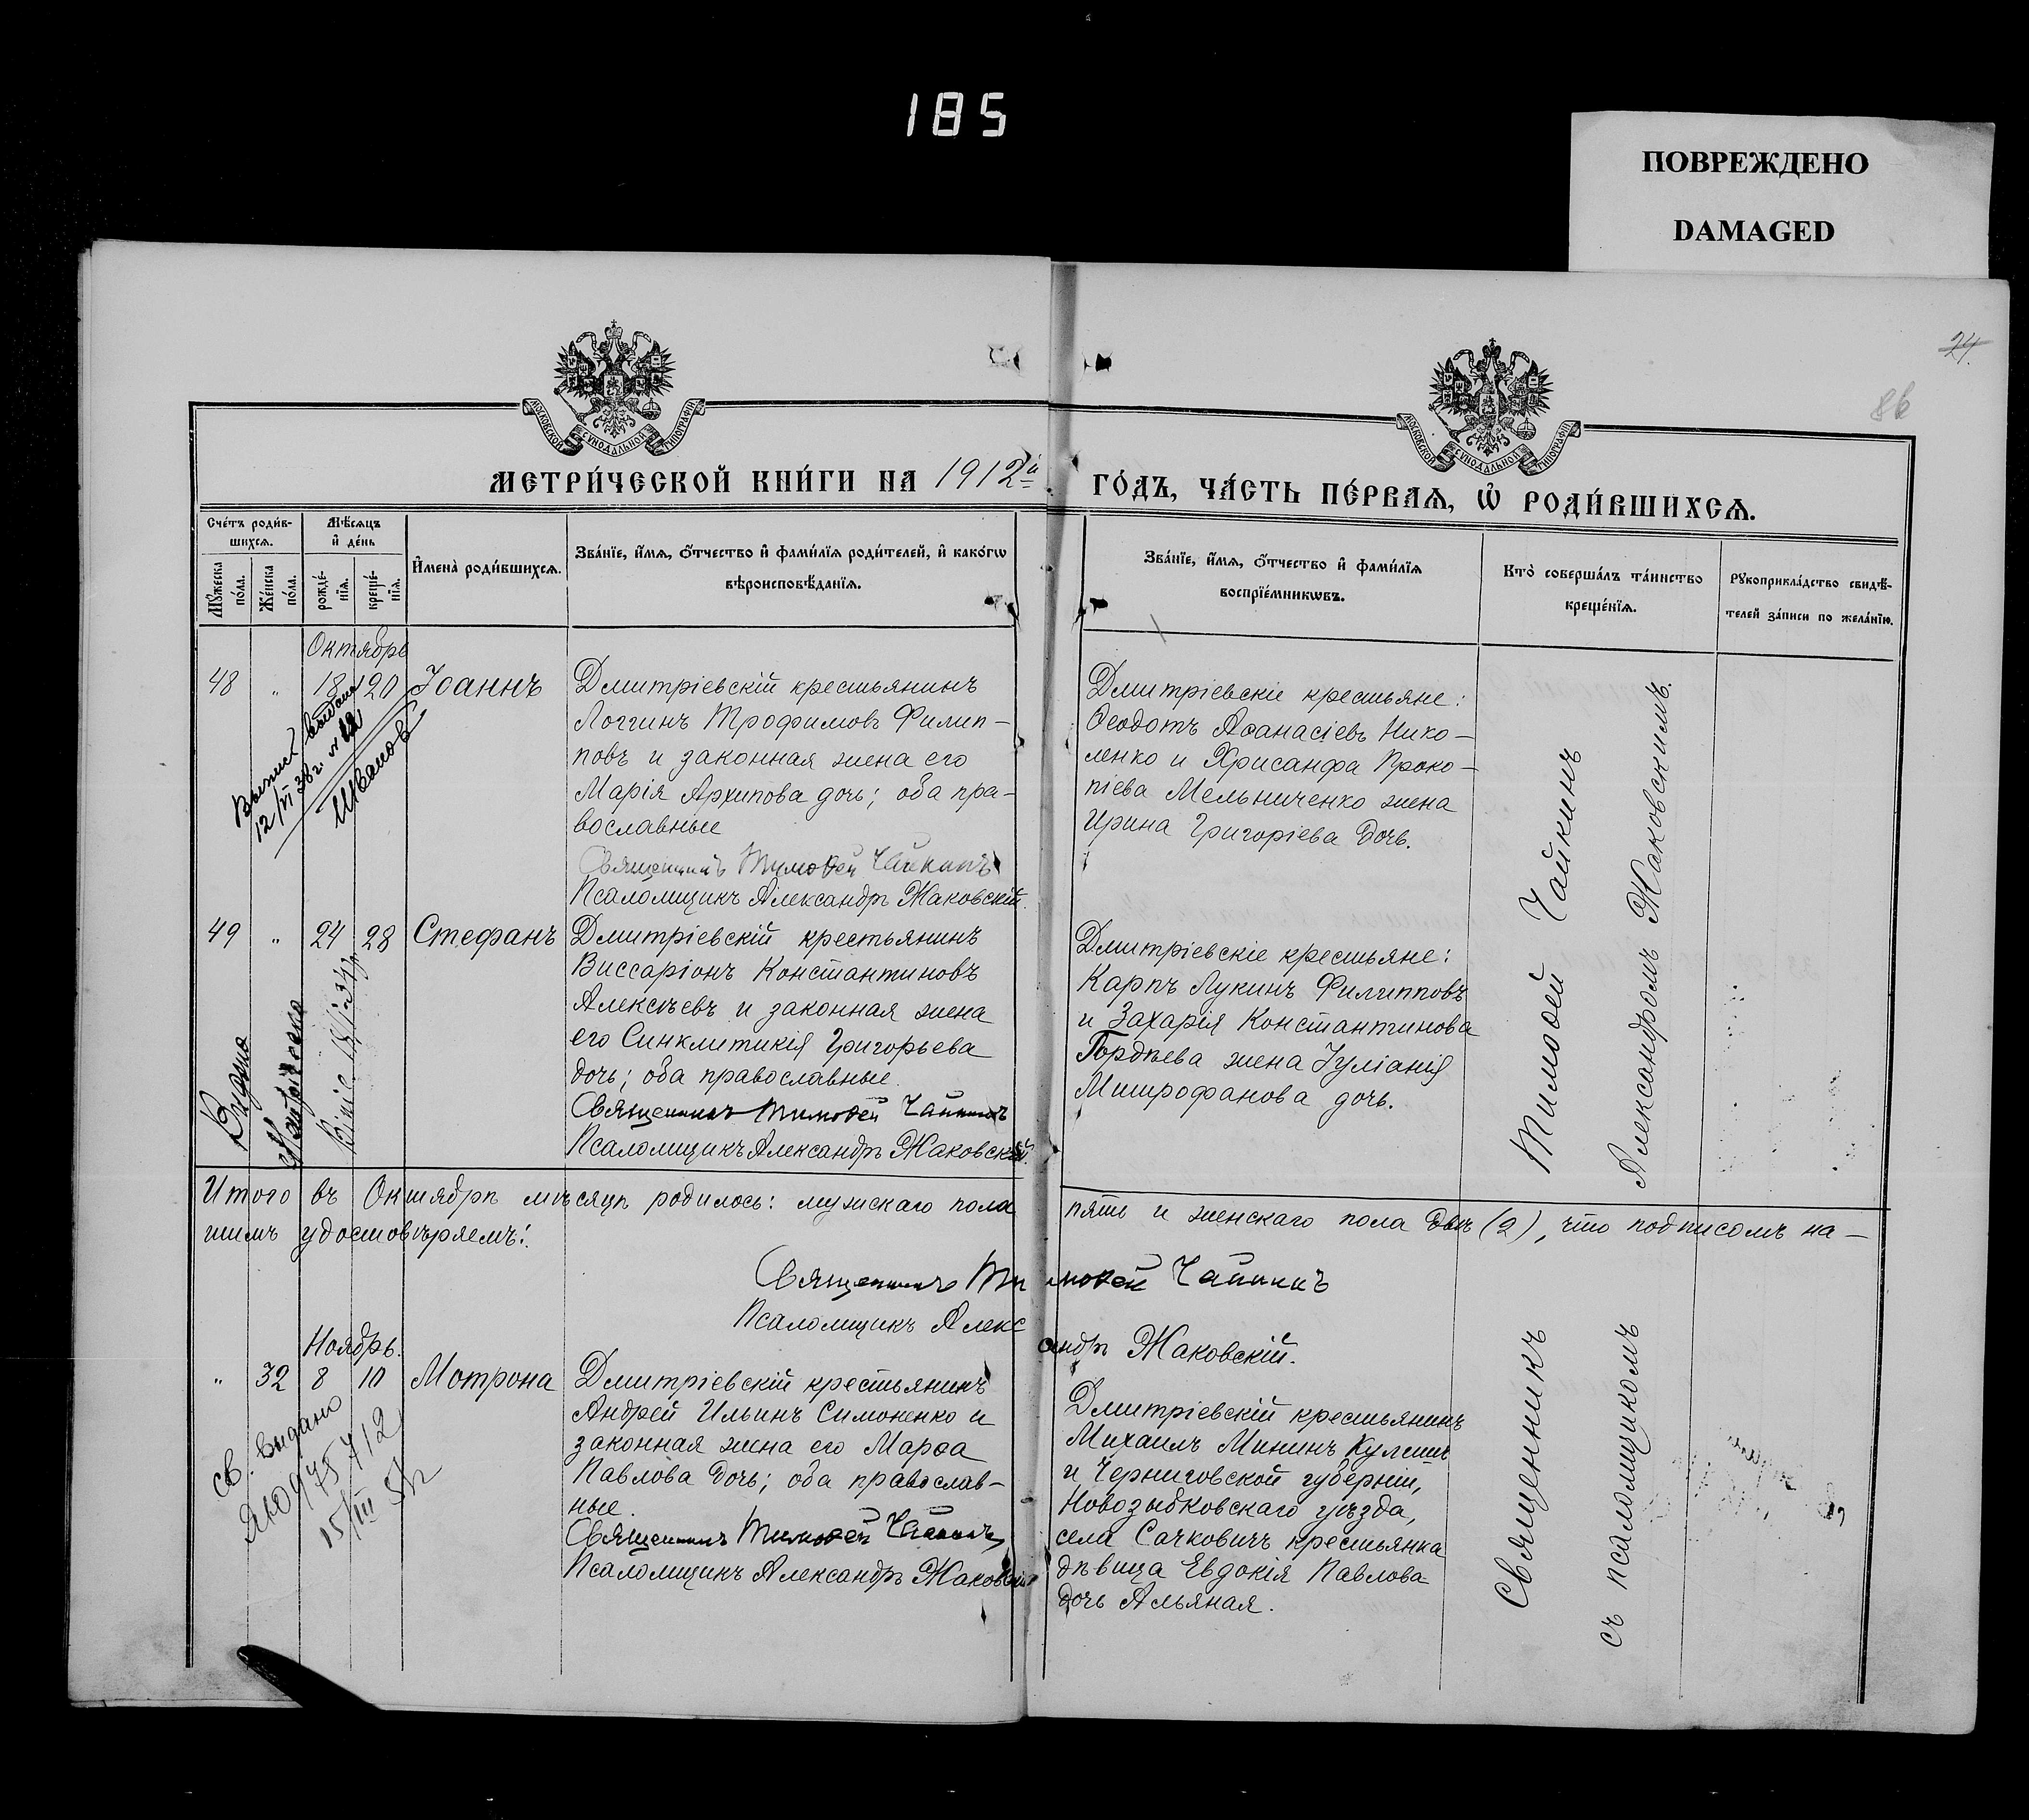 185
ПОВРЕЖДЕНО
DAMAGED
24.
86
МОСКОВСКОЙ СѴНОДАЛЬНОЙ ТИПОГРАФІИ
МОСКОВСКОЙ СѴНОДАЛЬНОЙ ТИПОГРАФІИ
МЕТРИ́ЧЕСКОЙ КНИ́ГИ НА 1912й
ГО́ДЪ, ЧА́СТЬ ПЕ́РВАѦ, Ѡ҆ РОДИ́ВШИХСѦ.
Сче́тъ роди́в-
шихсѧ.
Мѣ́сѧцъ
и҆ де́нь
И҆мена̀ роди́вшихсѧ.
Зва́нїе, и҆́мѧ, ѻ҆́тчество и҆ фами́лїѧ роди́телей, и҆ како́гѡ
вѣроисповѣ́данїѧ.
Мꙋ́жеска
по́ла.
Же́нска
по́ла.
рожде́-
нїѧ.
креще́-
нїѧ.
Зва́нїе, и҆́мѧ, ѻ҆́тчество и҆ фами́лїѧ
воспрїе́мникѡвъ.
Кто̀ соверша́лъ та́инство
креще́нїѧ.
Рꙋкоприкла́дство свидѣ́-
телей за́писи по жела́нїю.
Октябрь
48 " 18 20 Іоаннъ
Дмитріевскій крестьянинъ
Логгинъ Трофимовъ Филип-
повъ и законная жена его
Марія Архипова дочь; оба пра-
вославные
Священникъ Тимоѳей Чайкинъ
Псаломщикъ Александръ Жаковскій.
Дмитріевскіе крестьяне:
Ѳеодотъ Аѳанасіевъ Нико-
ленко и Хрисанфа Проко-
піева Мельниченко жена
Ирина Григоріева дочь.
12/VI 38г. №
49 " 24 28 Стефанъ
Дмитріевскій крестьянинъ
Виссаріонъ Константиновъ
Алексѣевъ и законная жена
его Синклитикія Григорьева
дочь; оба православные.
Священникъ Тимоѳей Чайкинъ
Псаломщикъ Александръ Жаковскій.
Дмитріевскіе крестьяне:
Карпъ Лукинъ Филипповъ
и Захарія Константинова
Гордѣева жена Іуліанія
Митрофанова дочь.
Итого въ Октябрѣ мѣсяцѣ родилось: мужскаго пола пять и женскаго пола двѣ (2), что подписомъ на-
шимъ удостовѣряемъ:
Священникъ Тимоѳей Чайкинъ
Псаломщикъ Александръ Жаковскій.
Ноябрь.
" 32 8 10 Мотрона
Дмитріевскій крестьянинъ
Андрей Ильинъ Симоненко и
законная жена его Марѳа
Павлова дочь; оба православ-
ные.
Священникъ Тимоѳей Чайкинъ
Псаломщикъ Александръ Жаковскій
Дмитріевскій крестьянинъ
Михаилъ Мининъ
и Черниговской губерніи,
Новозыбковскаго уѣзда,
села Сачковичъ крестьянка
дѣвица Евдокія Павлова
дочь Альяная.
св. выдано
15/III
Священникъ Тимоѳей Чайкинъ
съ псаломщикомъ Александромъ Жаковскимъ.